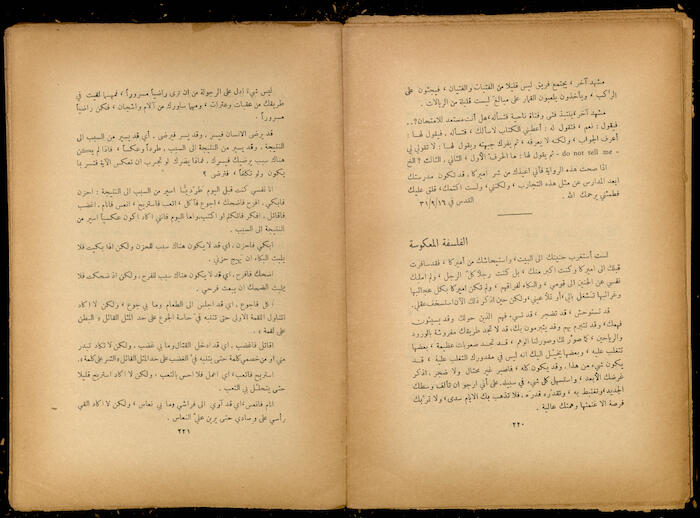 مشهد آخر ، يجتمع فريق ليس قليلا من الفتيات والفتيان ، فيجثون على
الركب ، ويأخذون يلعبون القمار على مبالغ ليست قليلة من الريالات .
مشهد آخر ، ينتبذ فتى وفتاة ناحية فتسأله ، هل أنت مستعد للامتحان ؟..
فيقول : نعم ، فتقول له : أعطني الكتاب لأسألك ، فتسأله ، فيقول لها :
أعرف الجواب ، ولكنه لا يعرفه ، ثم يفرك جبهته ويقول لها : لا تقولي لي
- do not tell me - ثم يقول لها : ما الحرف الأول ، الثاني ، الثالث ؟ الخ
اذا صحت هذه الرواية فأني اعيذك من شر اميركا ، قد تكون مدرستك
ابعد المدارس عن مثل هذه التجارب ، ولكني ، ولست اكتمك ، قلق عليك
فطمئني يرحمك الله . القدس في ٣١/٩/١٦
الفلسفة المعكوسة
لست أستغرب حنينك الى البيت ، واستيحاشك من أميركا ، فقد سافرت
قبلك الى اميركا وكنت اكبر منك ، بل كنت رجلا كل الرجل ، ولم املك
نفسي عن الحنين الى قومي ، والبكاء لفراقهم ، ولم تكن اميركا بكل عجائبها
وغرائبها لتشغل بالي ، أو تسلّا عني ، ولكن حين اذكر ذلك الآن استخف عقلي .
قد تستوحش ، قد تضجر ، قد تسيء فهم الذين حولك وقد يسيئون
فهمك ، وقد تتبرم بهم وقد يتبرمون بك ، قد لا تجد طريقك مفروشة بالورود
والرياحين ، كما صوّر لك وصور لنا الوهم ، قد تجد صعوبات عظيمة ، بعضها
تتغلب عليه ، وبعضها يخيّل اليك انه ليس في مقدورك التغلب عليه ، قد
يكون شيء من هذا ، وقد يكون كله ، فاصبر غير محتال ولا ضجر ، اذكر
غرضك الأبعد ، واستسهل كل شيء في سبيله . على أني ارجو ان تألف وسطك
الجديد ، وتغتبط به ، وتقدّره قدره ، فلا تذهب بك الايام سدى ، ولا تمرّ بك
فرصة الا غنمتها وهمتك عالية .
٢٢٠
ليس شيء ادل على الرجولة من ان ترى راضياً مسروراً ، فمهما لقيت في
طريقك من عقبات وعثرات ، ومهما ساورك من آلام واشجان ، فكن راضياً
مسروراً .
قد يرضى الانسان فيسر ، وقد يسر فيرضى ، أي قد يسير من السبب الى
النتيجة ، وقد يسير من النتيجة الى السبب ، طرداً وعكساً ، فاذا لم يكن
هناك سبب يرضيك فيسرك ، فماذا يضرك لو تجرب ان تعكس الآية فتسر بما
يكون ولو تكلفاً ، فترضى ؟
انا نفسي كنت قبل اليوم طردياً اسير من السبب الى النتيجة : احزن
فابكي . افرح فاضحك ، اجوع فآكل ، اتعب فاستريح ، انعس فانام . اغضب
فاقاتل . افكر فاتكلم او اكتب ، واما اليوم فاني اكاد اكون عكسياً اسير من
النتيجة الى السبب .
ابكي فاحزن ، اي قد لا يكون هناك سبب للحزن ولكن اذا بكيت فلا
يلبث البكاء ان يهيج حزني .
اضحك فافرح ، اي قد لا يكون هناك سبب للفرح ، ولكن اذ ضحكت فلا
يلبث الضحك ان يبعث فرحي .
آكل فاجوع ، اي قد اجلس الى الطعام وما بي جوع ، ولكن لا اكاد
اتناول اللقمة الاولى حتى يتنبه في حاسة الجوع على حد المثل القائل « البطن
على لقمة » .
اقاتل فاغضب . اي قد ادخل القتال وما بي غضب . ولكن لا تكاد تبدر
مني او من خصمي كلمة حتى يتنبه في الغضب على حد المثل القائل « الشر على كلمة » .
استريح فاتعب ، اي اعمل فلا احس بالتعب ، ولكن لا اكاد استريح قليلا
حتى يتحلل بي التعب .
انام فانعس ، اي قد آوي الى فراشي وما بي نعاس ، ولكن لا اكاد القي
رأسي على وسادي حتى يرين علي النعاس .
٢٢١